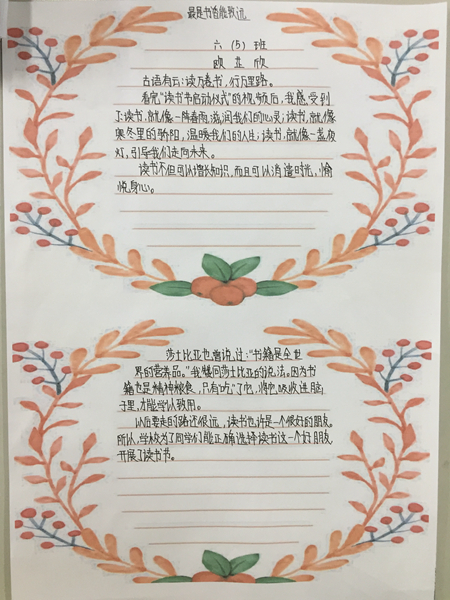 最是书香能致远
六（5）班
欧芷欣
古语有云：读万卷书，行万里路。
看完“读书节启动仪式”的视频后，我感受到
了：读书，就像一阵春雨，滋润我们的心灵；读书，就像
寒冬里的骄阳，温暖我们的人生；读书，就像一盏夜
灯，引导我们走向未来。
读书不但可以增长知识，而且可以消遣时光，愉
悦身心。
莎士比亚也曾说过：“书籍是全世
界的营养品。”我赞同莎士比亚的说法，因为书
籍也是精神粮食，只有“吃”了它，将它吸收进脑
子里，才能学以致用。
以后要走的路还很远，读书也许是一个很好的朋友。
所以，学校为了同学们能正确选择读书这一个好朋友，
开展了读书节。